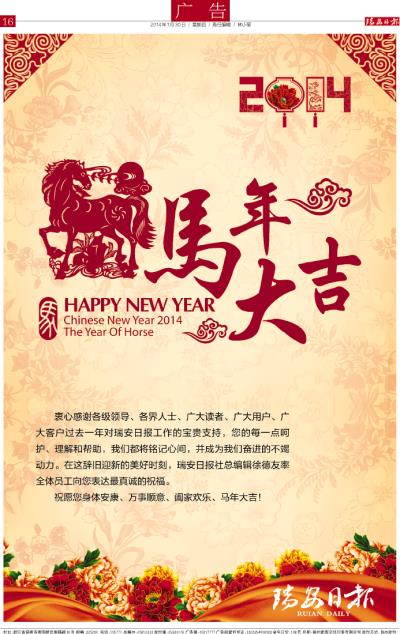 16
广告
2014年1月30日
瑞安日报
2014
馬年
大吉
馬
HAPPY NEW YEAR
Chinese New Year 2014
The Year Of Horse
衷心感谢各级领导、各界人士、广大读者、广大用户、广
大客户过去一年对瑞安日报工作的宝贵支持，您的每一点呵
护、理解和帮助，我们都将铭记心间，并成为我们奋进的不竭
动力。在这辞旧迎新的美好时刻，瑞安日报社总编辑徐德友率
全体员工向您表达最真诚的祝福。
祝愿您身体安康、万事顺意、阖家欢乐、马年大吉！
瑞安日报
RUIAN DAILY